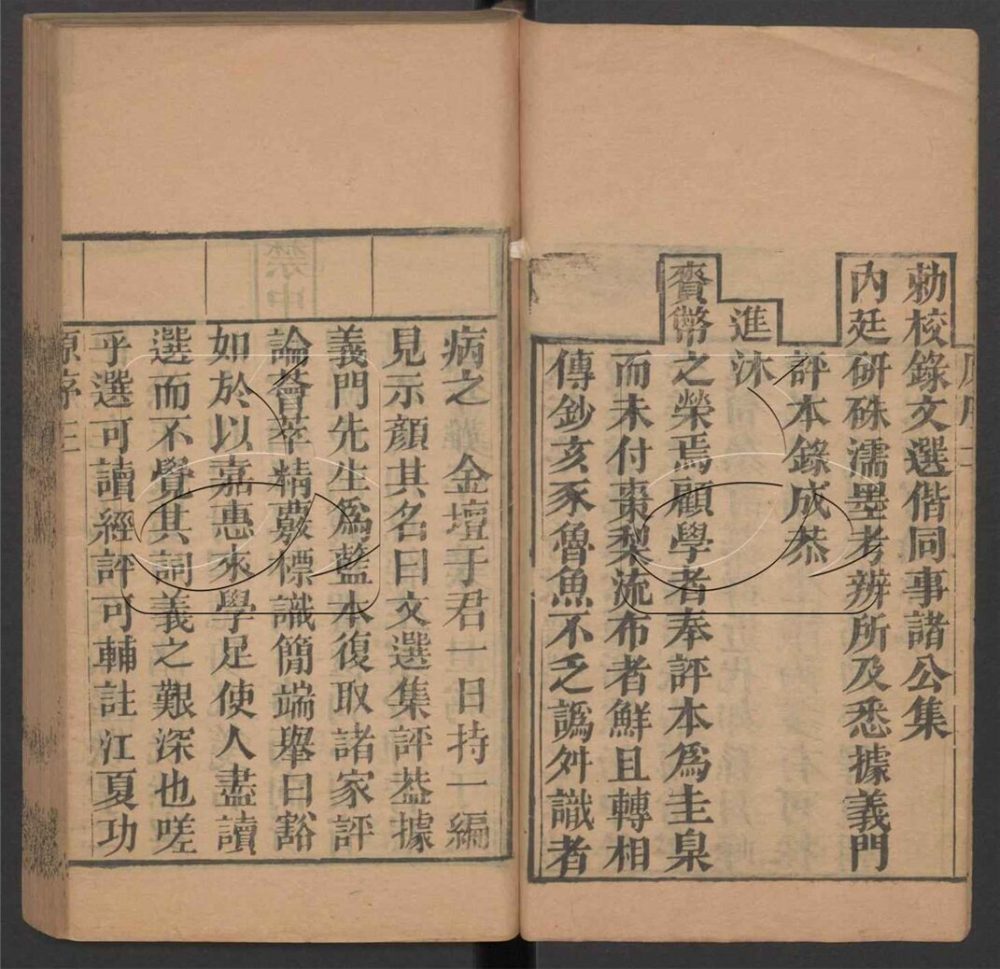 勅校錄文選偕同事諸公集
內廷研硃濡墨考辨所及悉據義門
評本錄成恭
進沐
賚幣之榮焉顧學者奉評本爲圭臬
而未付棗梨流布者鮮且轉相
傳鈔亥豕魯魚不乏譌舛識者
病之金壇于君一日持一編
見示顏其名曰文選集評葢據
義門先生爲藍本復取諸家評
論薈萃精覈標識簡端舉曰豁
如於以嘉惠來學足使人盡讀
選而不覺其詞義之艱深也嗟
乎選可讀經評可輔註江夏功
原序 三